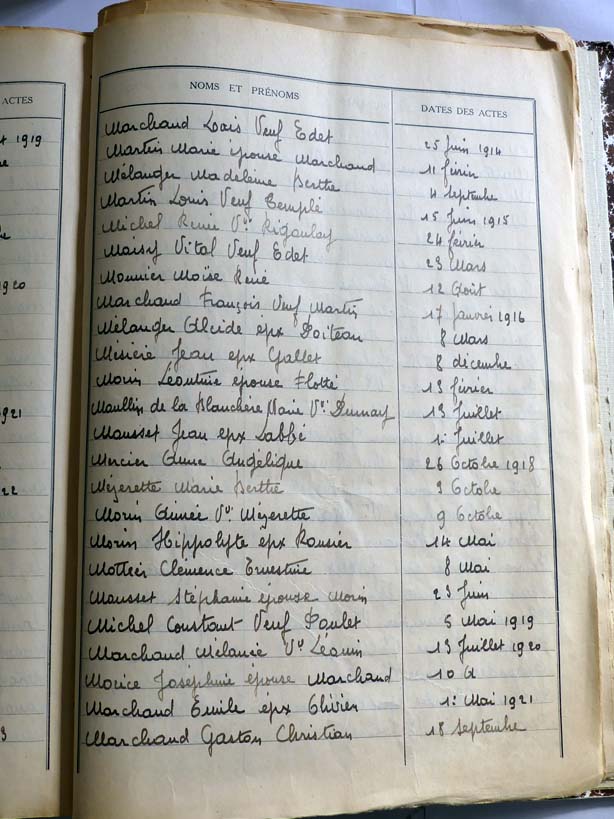 ACTES
1919
1920
1921
22
NOMS ET PRÉNOMS DATES DES ACTES
Marchand Louis Veuf Edet 25 Juin 1914
Martin Marie épouse Marchand 11 février
Mélanger Madeleine Berthe 4 Septembre
Martin Louis Veuf Templé 15 Juin 1915
Michel Renée Vve 24 février
Maisy Vital Veuf Edet 23 Mars
Mounier Moïse René 12 Août
Marchand François Veuf Martin 17 Janvier 1916
Mélanger Alcide epx Poiteau 8 Mars
Jean epx Gallet 8 décembre
Morin Léontine épouse Flotté 13 février
Maullin de la Blanchère Marie Vve 13 Juillet
Mausset Jean epx Labbé 1r Juillet
Mercier Anne Angélique 26 Octobre 1918
Mézerette Marie Berthe 9 Octobre
Morin Aimée Vve Mézerette 9 Octobre
Morin Hippolyte epx Rousier 14 Mai
Clémence Ernestine 8 Mai
Mausset Stéphanie épouse Morin 23 Juin
Michel Constant Veuf Paulet 5 Mai 1919
Marchand Mélanie Vve 13 Juillet 1920
Morice Joséphine épouse Marchand 10
Marchand Emile epx Olivier 1r Mai 1921
Marchand Gaston Christian 18 Septembre